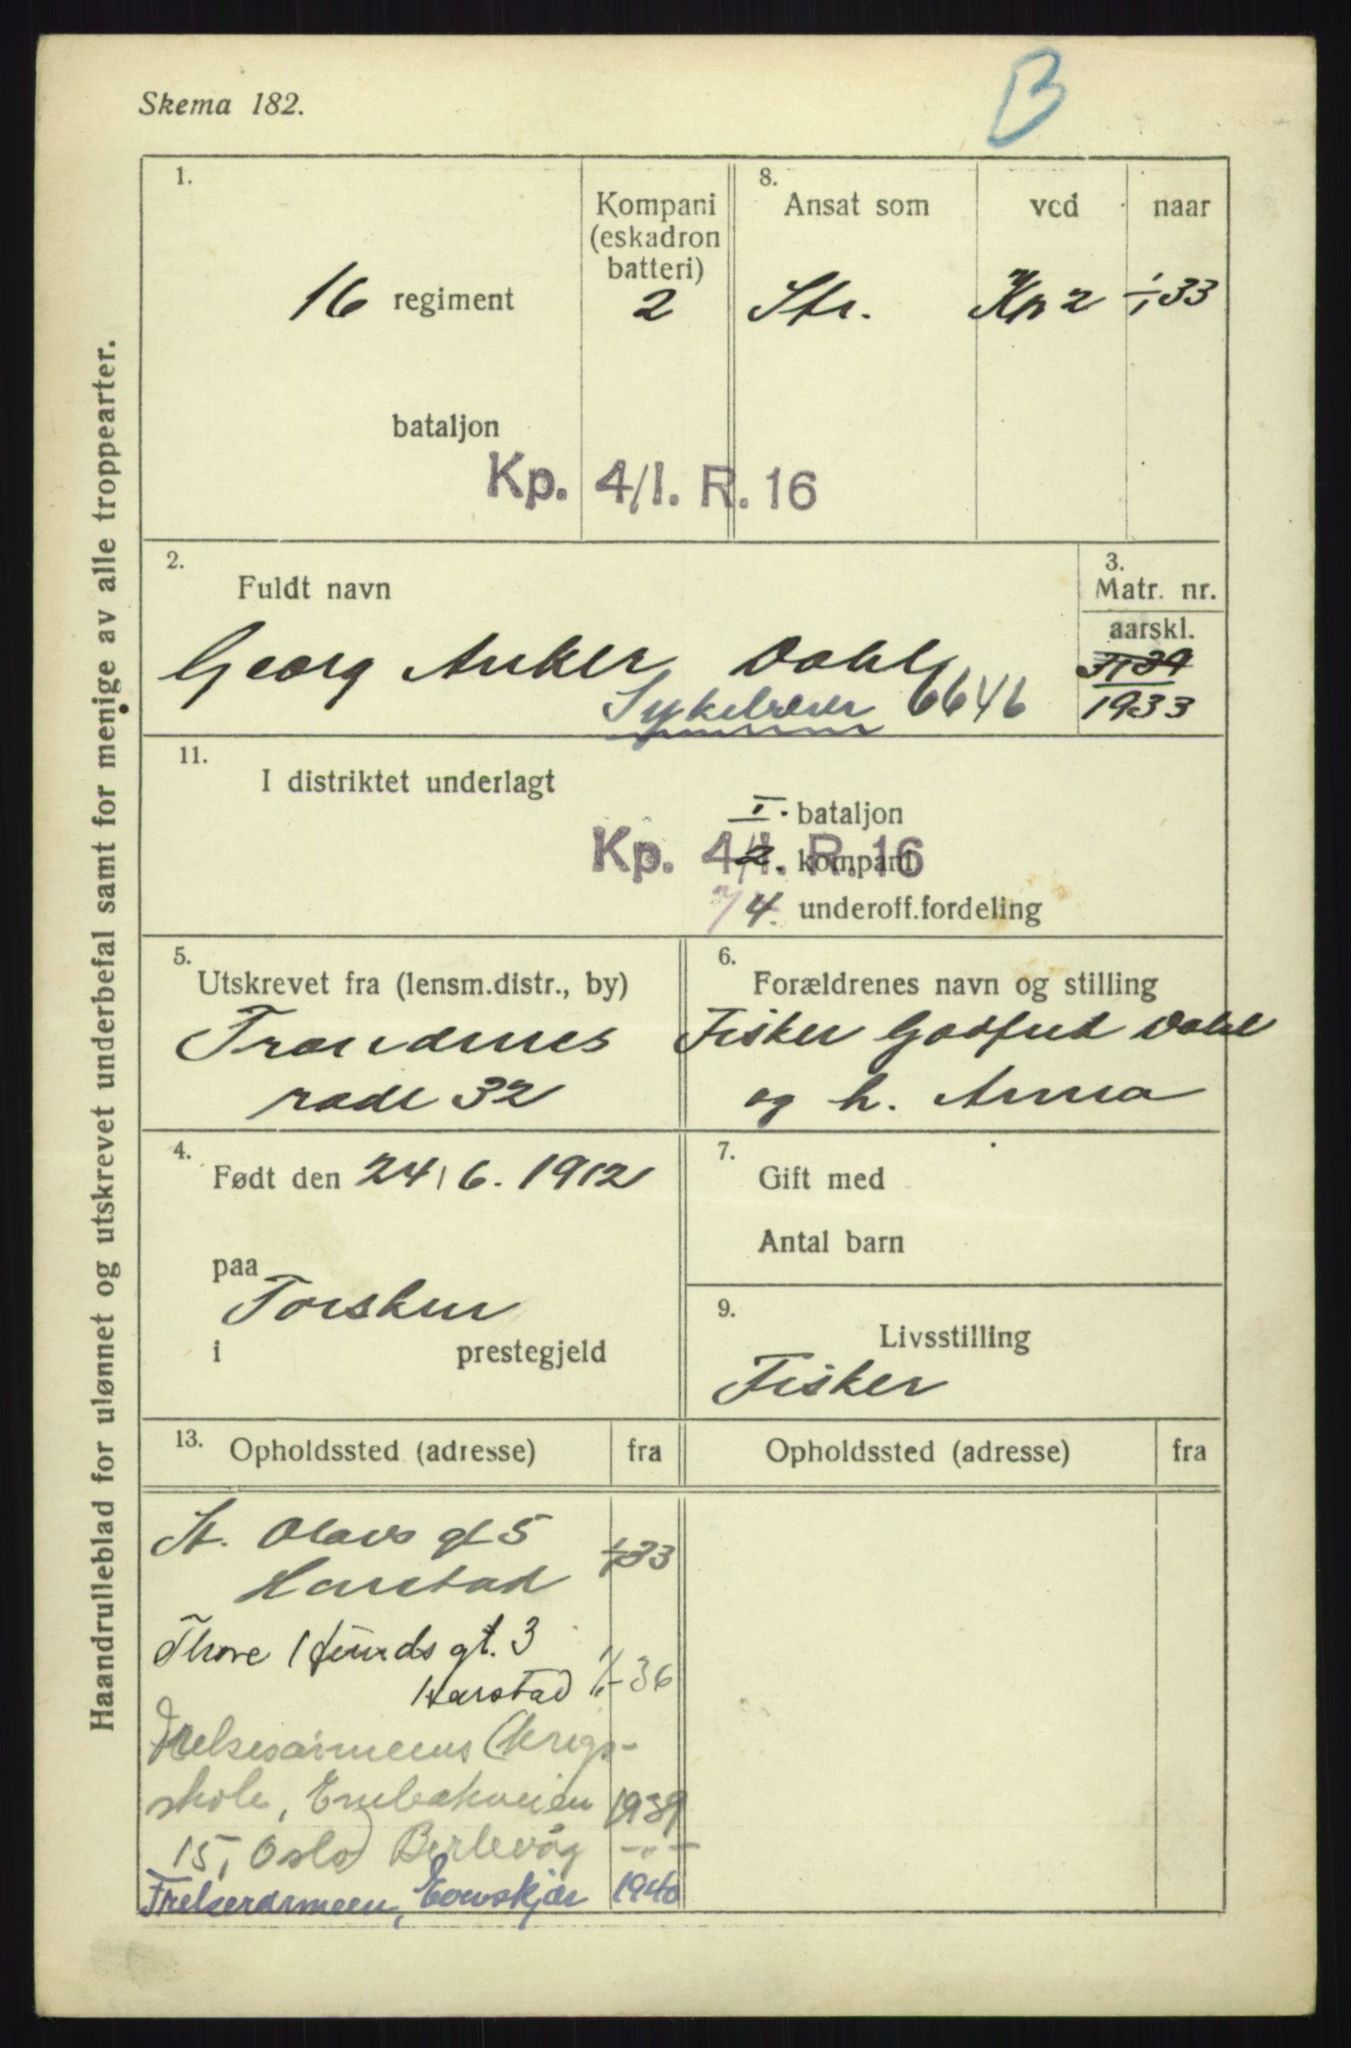 Skema 182.
B
Haandrulleblad for ulønnet og utskrevet underbefal samt for menige av alle troppearter.
1.
16 regiment
bataljon
Kompani
(eskadron
batteri)
2
8.
Ansat som
ved
naar
Str.
Kp 2
1/1 33
Kp. 4/I. R. 16
2.
Fuldt navn
Georg Anker Dahl
Sykebærer 6646
3.
Matr. nr.
aarskl.
1933
11.
I distriktet underlagt
I. bataljon
Kp. 4/I. R. 16
2. kompani
4. underoff.fordeling
5.
Utskrevet fra (lensm.distr., by)
Trondenes
rode 32
6.
Forældrenes navn og stilling
Fisker Godfred Dahl
og h. Anna
4.
Født den 24/6. 1912
paa
Torsken
i prestegjeld
7.
Gift med
Antal barn
9.
Livsstilling
Fisker
13.
Opholdssted (adresse)
fra
Opholdssted (adresse)
fra
St. Olavs gt 5
Harstad
1/1 33
Thore Hunds gt. 3
Harstad 1/1-36
Frelsesarmeens Krigs-
skole, 1939
15, Oslo Berlevåg -"-
Frelsesarmeen, 1940